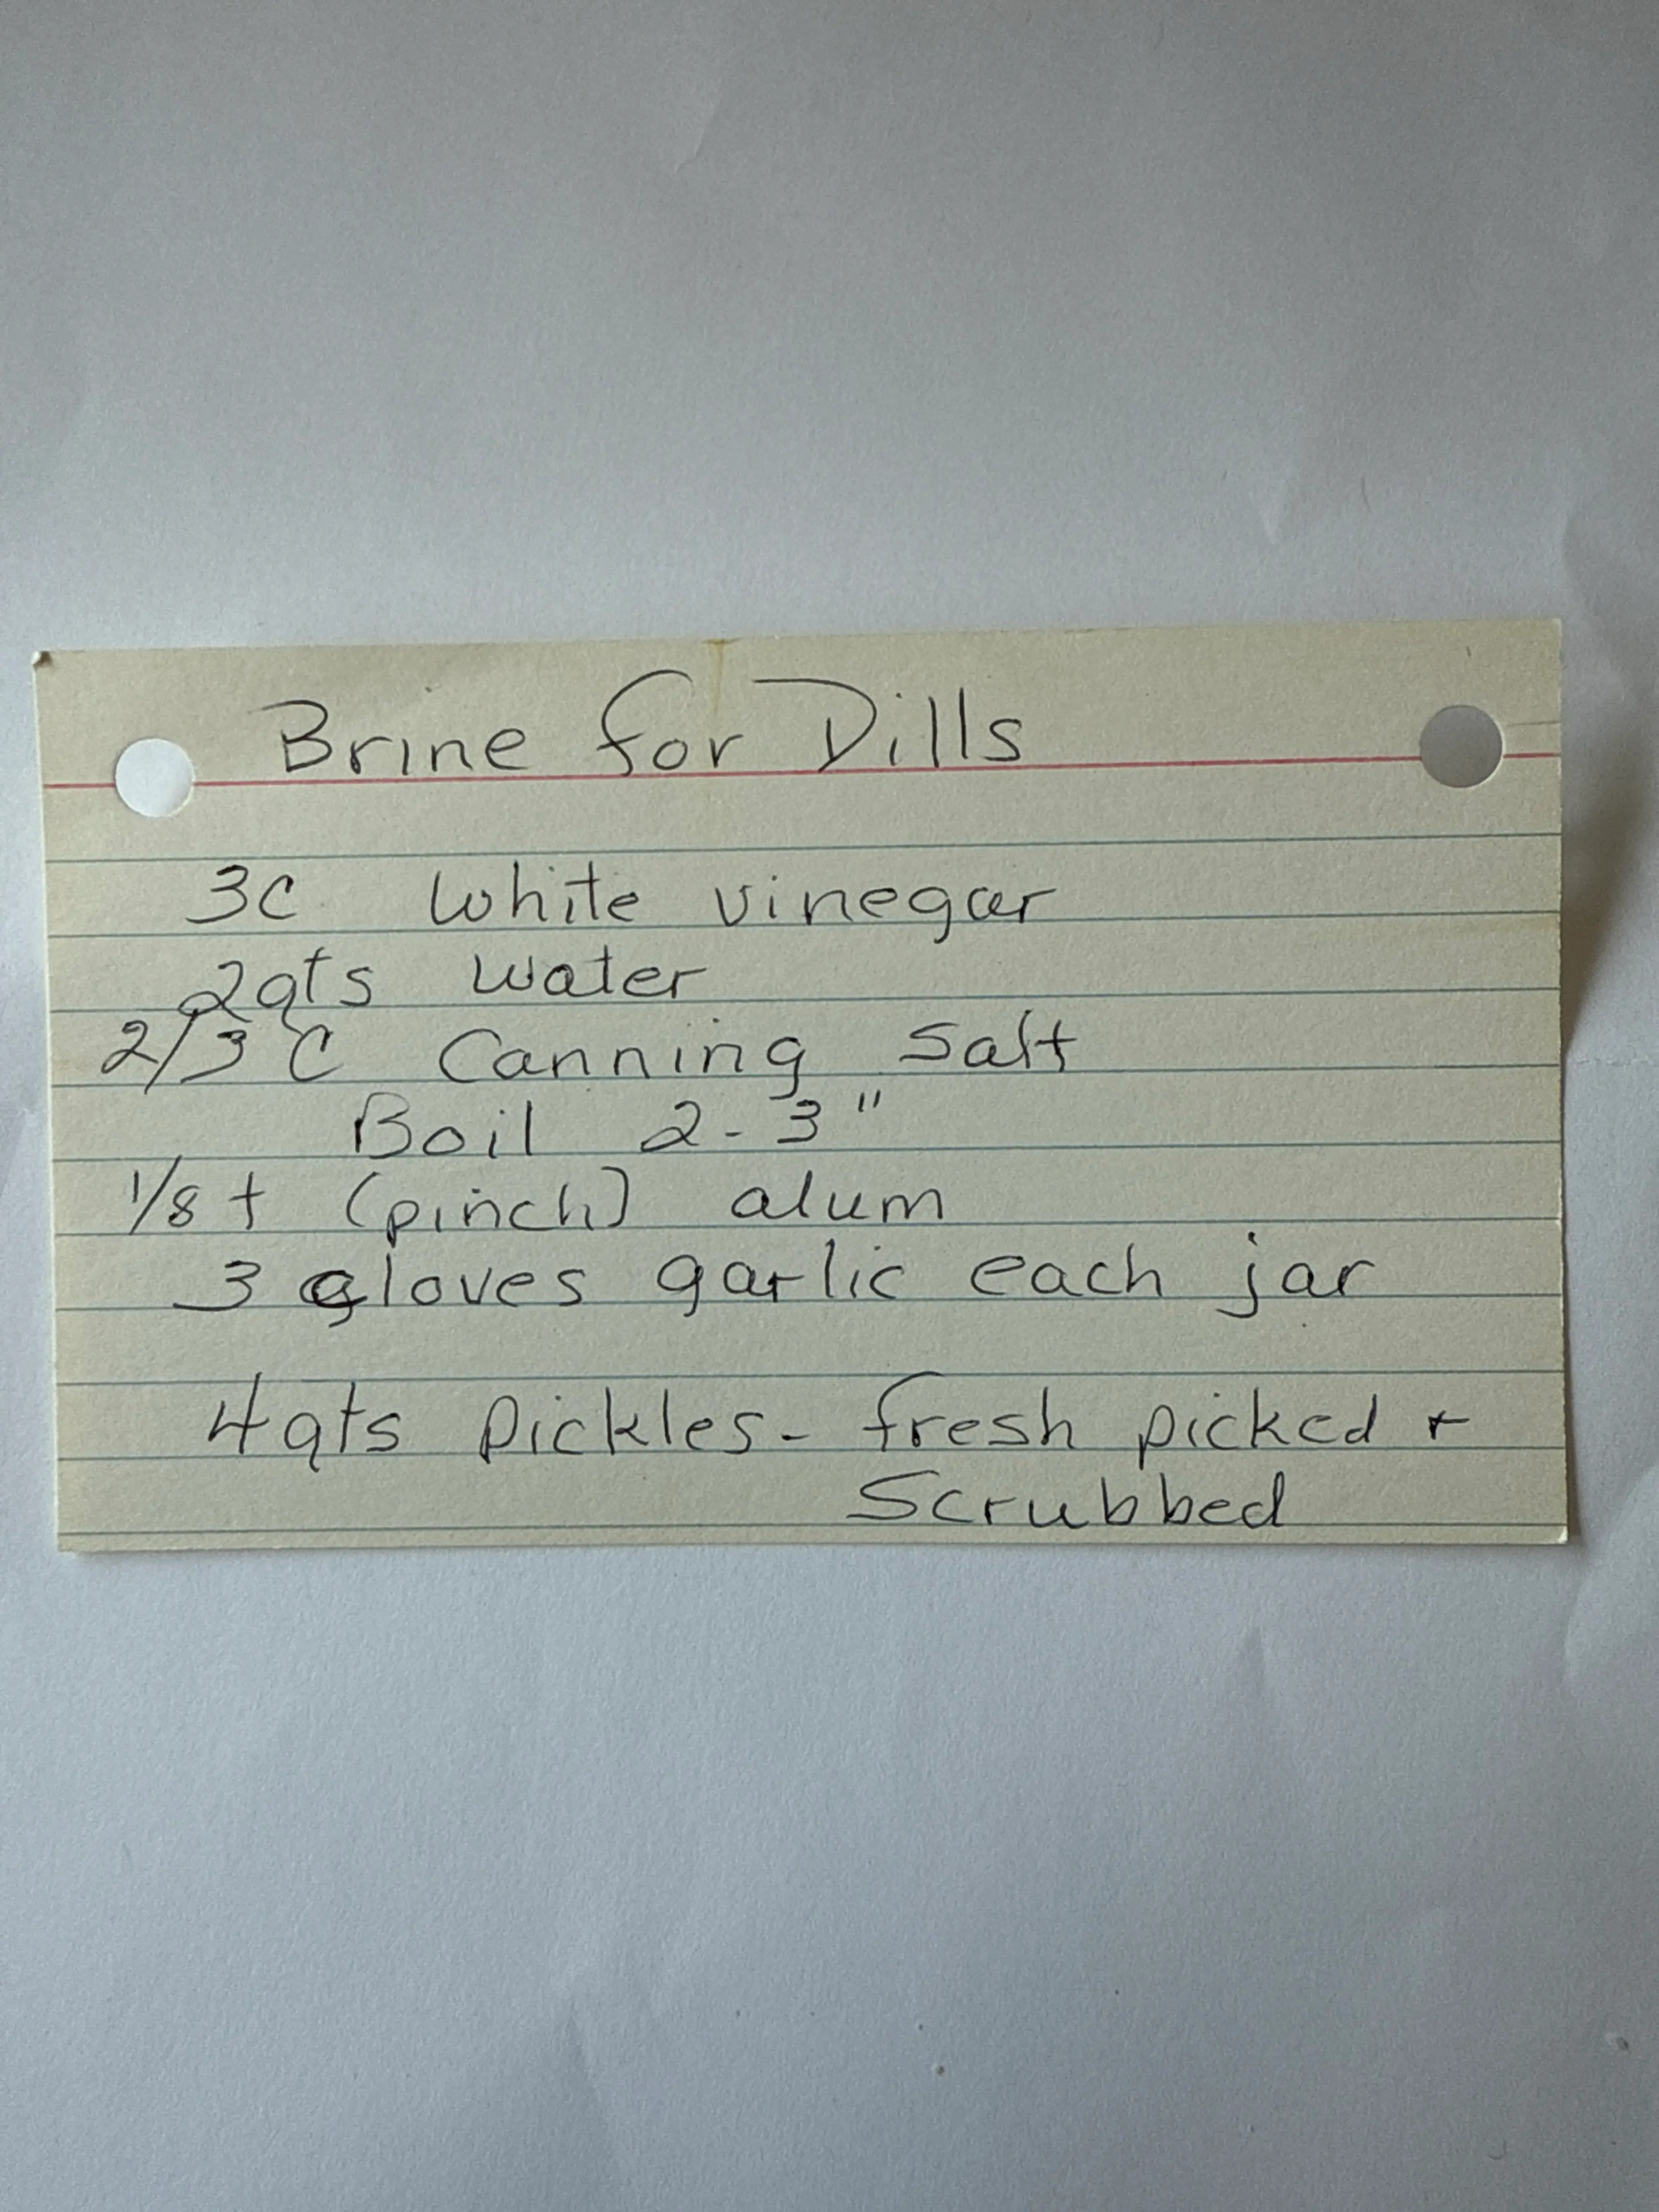 Brine for Dills
3c White vinegar
2qts water
2/3 C Canning Salt
Boil 2-3"
1/8 t (pinch) alum
3 cloves garlic each jar
4qts pickles - fresh picked +
Scrubbed